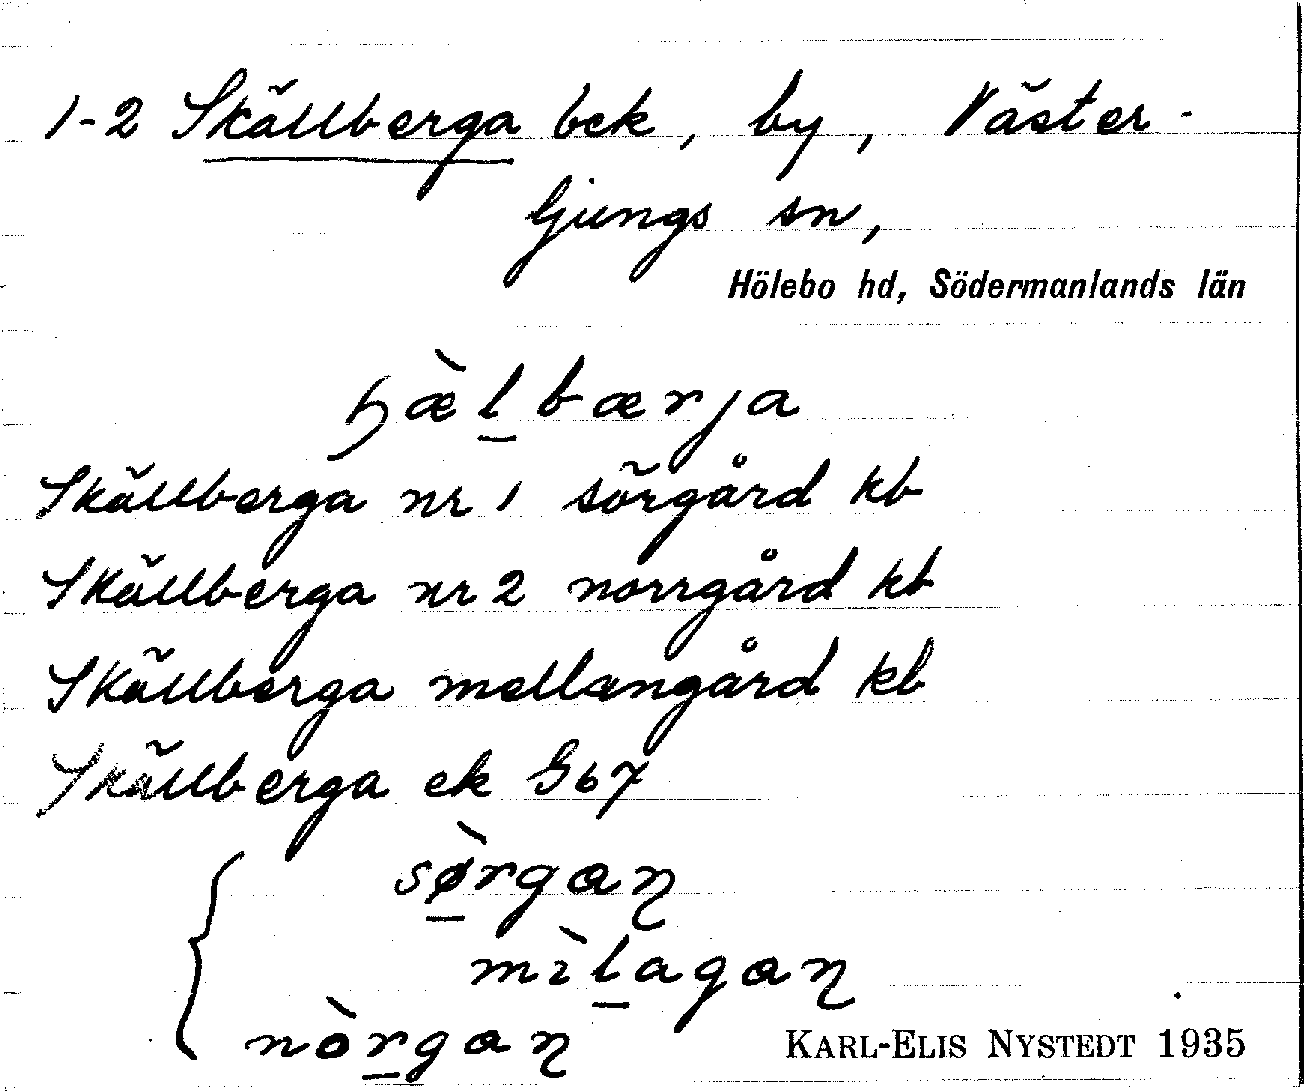 1-2 Skällberga bck, by, Väster-
ljungs sn,
Hölebo hd, Södermanlands län
Skällberga nr 1 sörgård kb
Skällberga nr 2 norrgård kb
Skällberga mellangård kb
Skällberga ek G67
sø̀rgaɳ
mìlagaɳ
nòrgaɳ
KARL-ELIS NYSTEDT 1935